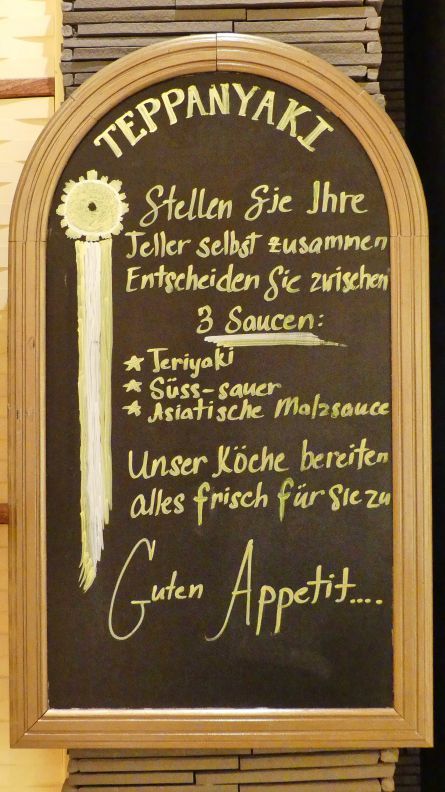 TEPPANYAKI
Stellen Sie Ihre
Teller selbst zusammen
Entscheiden Sie zwischen
3 Saucen:
* Teriyaki
* Süss-sauer
* Asiatische Malzsauce
Unser Köche bereiten
alles frisch für Sie zu
Guten Appetit....